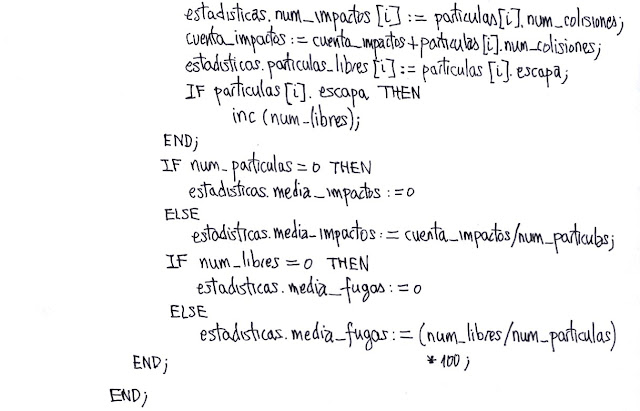 estadisticas.num_impactos[i] := particulas[i].num_colisiones;
cuenta_impactos := cuenta_impactos + particulas[i].num_colisiones;
estadisticas.particulas_libres[i] := particulas[i].escapa;
IF particulas[i].escapa THEN
inc (num_libres);
END;
IF num_particulas = 0 THEN
estadisticas.media_impactos := 0
ELSE
estadisticas.media_impactos := cuenta_impactos/num_particulas;
IF num_libres = 0 THEN
estadisticas.media_fugas := 0
ELSE
estadisticas.media_fugas := (num_libres/num_particulas)
* 100;
END;
END;